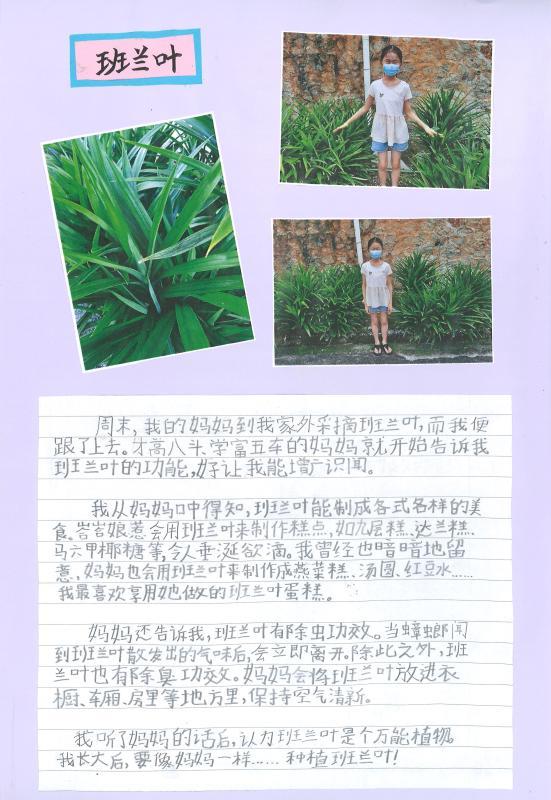 班兰叶
周末，我的妈妈到我家外采摘班兰叶，而我便
跟了上去。才高八斗、学富五车的妈妈就开始告诉我
班兰叶的功能，好让我能增广识闻。
我从妈妈口中得知，班兰叶能制成各式各样的美
食。峇峇娘惹会用班兰叶来制作糕点，如九层糕、达兰糕、
马六甲椰糖等，令人垂涎欲滴。我曾经也暗暗地留
意，妈妈也会用班兰叶来制作成燕菜糕、汤圆、红豆水……
我最喜欢享用她做的班兰叶蛋糕。
妈妈还告诉我，班兰叶有除虫功效。当蟑螂闻
到班兰叶散发出的气味后，会立即离开。除此之外，班
兰叶也有除臭功效。妈妈会将班兰叶放进衣
橱、车厢、房里等地方里，保持空气清新。
我听了妈妈的话后，认为班兰叶是个万能植物。
我长大后，要像妈妈一样……种植班兰叶！